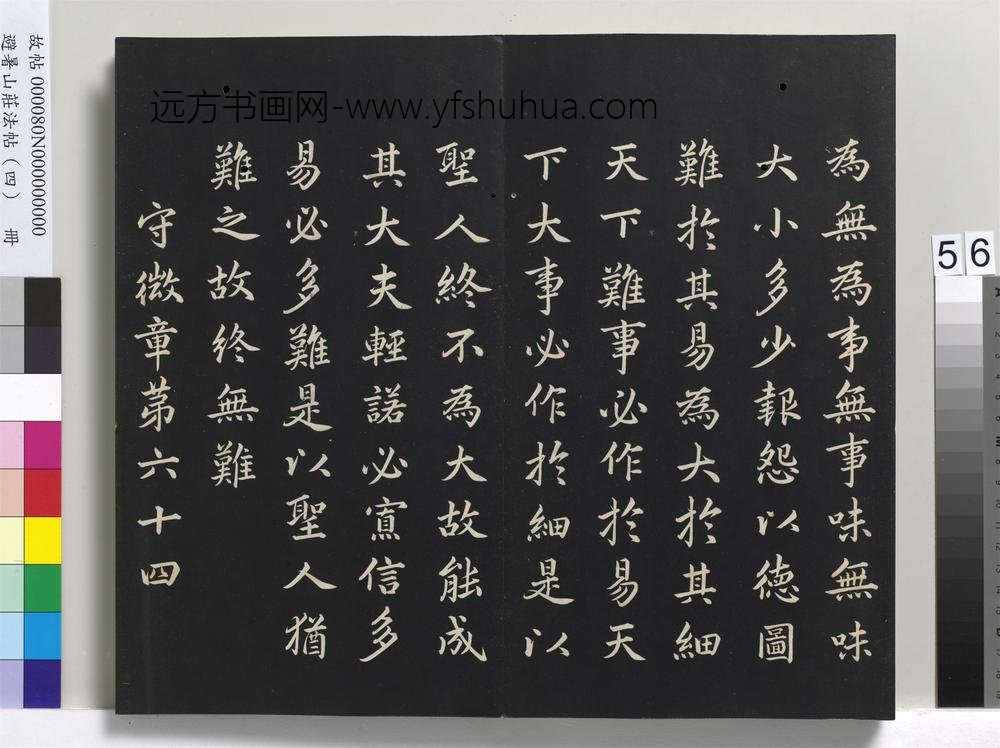 為無為事無事味無味
大小多少報怨以德圖
難於其易為大於其細
天下難事必作於易天
下大事必作於細是以
聖人終不為大故能成
其大夫輕諾必寡信多
易必多難是以聖人猶
難之故終無難
守微章第六十四
远方书画网-www.yfshuhua.com
故帖000080N000000000
避暑山莊法帖(四) 冊
56